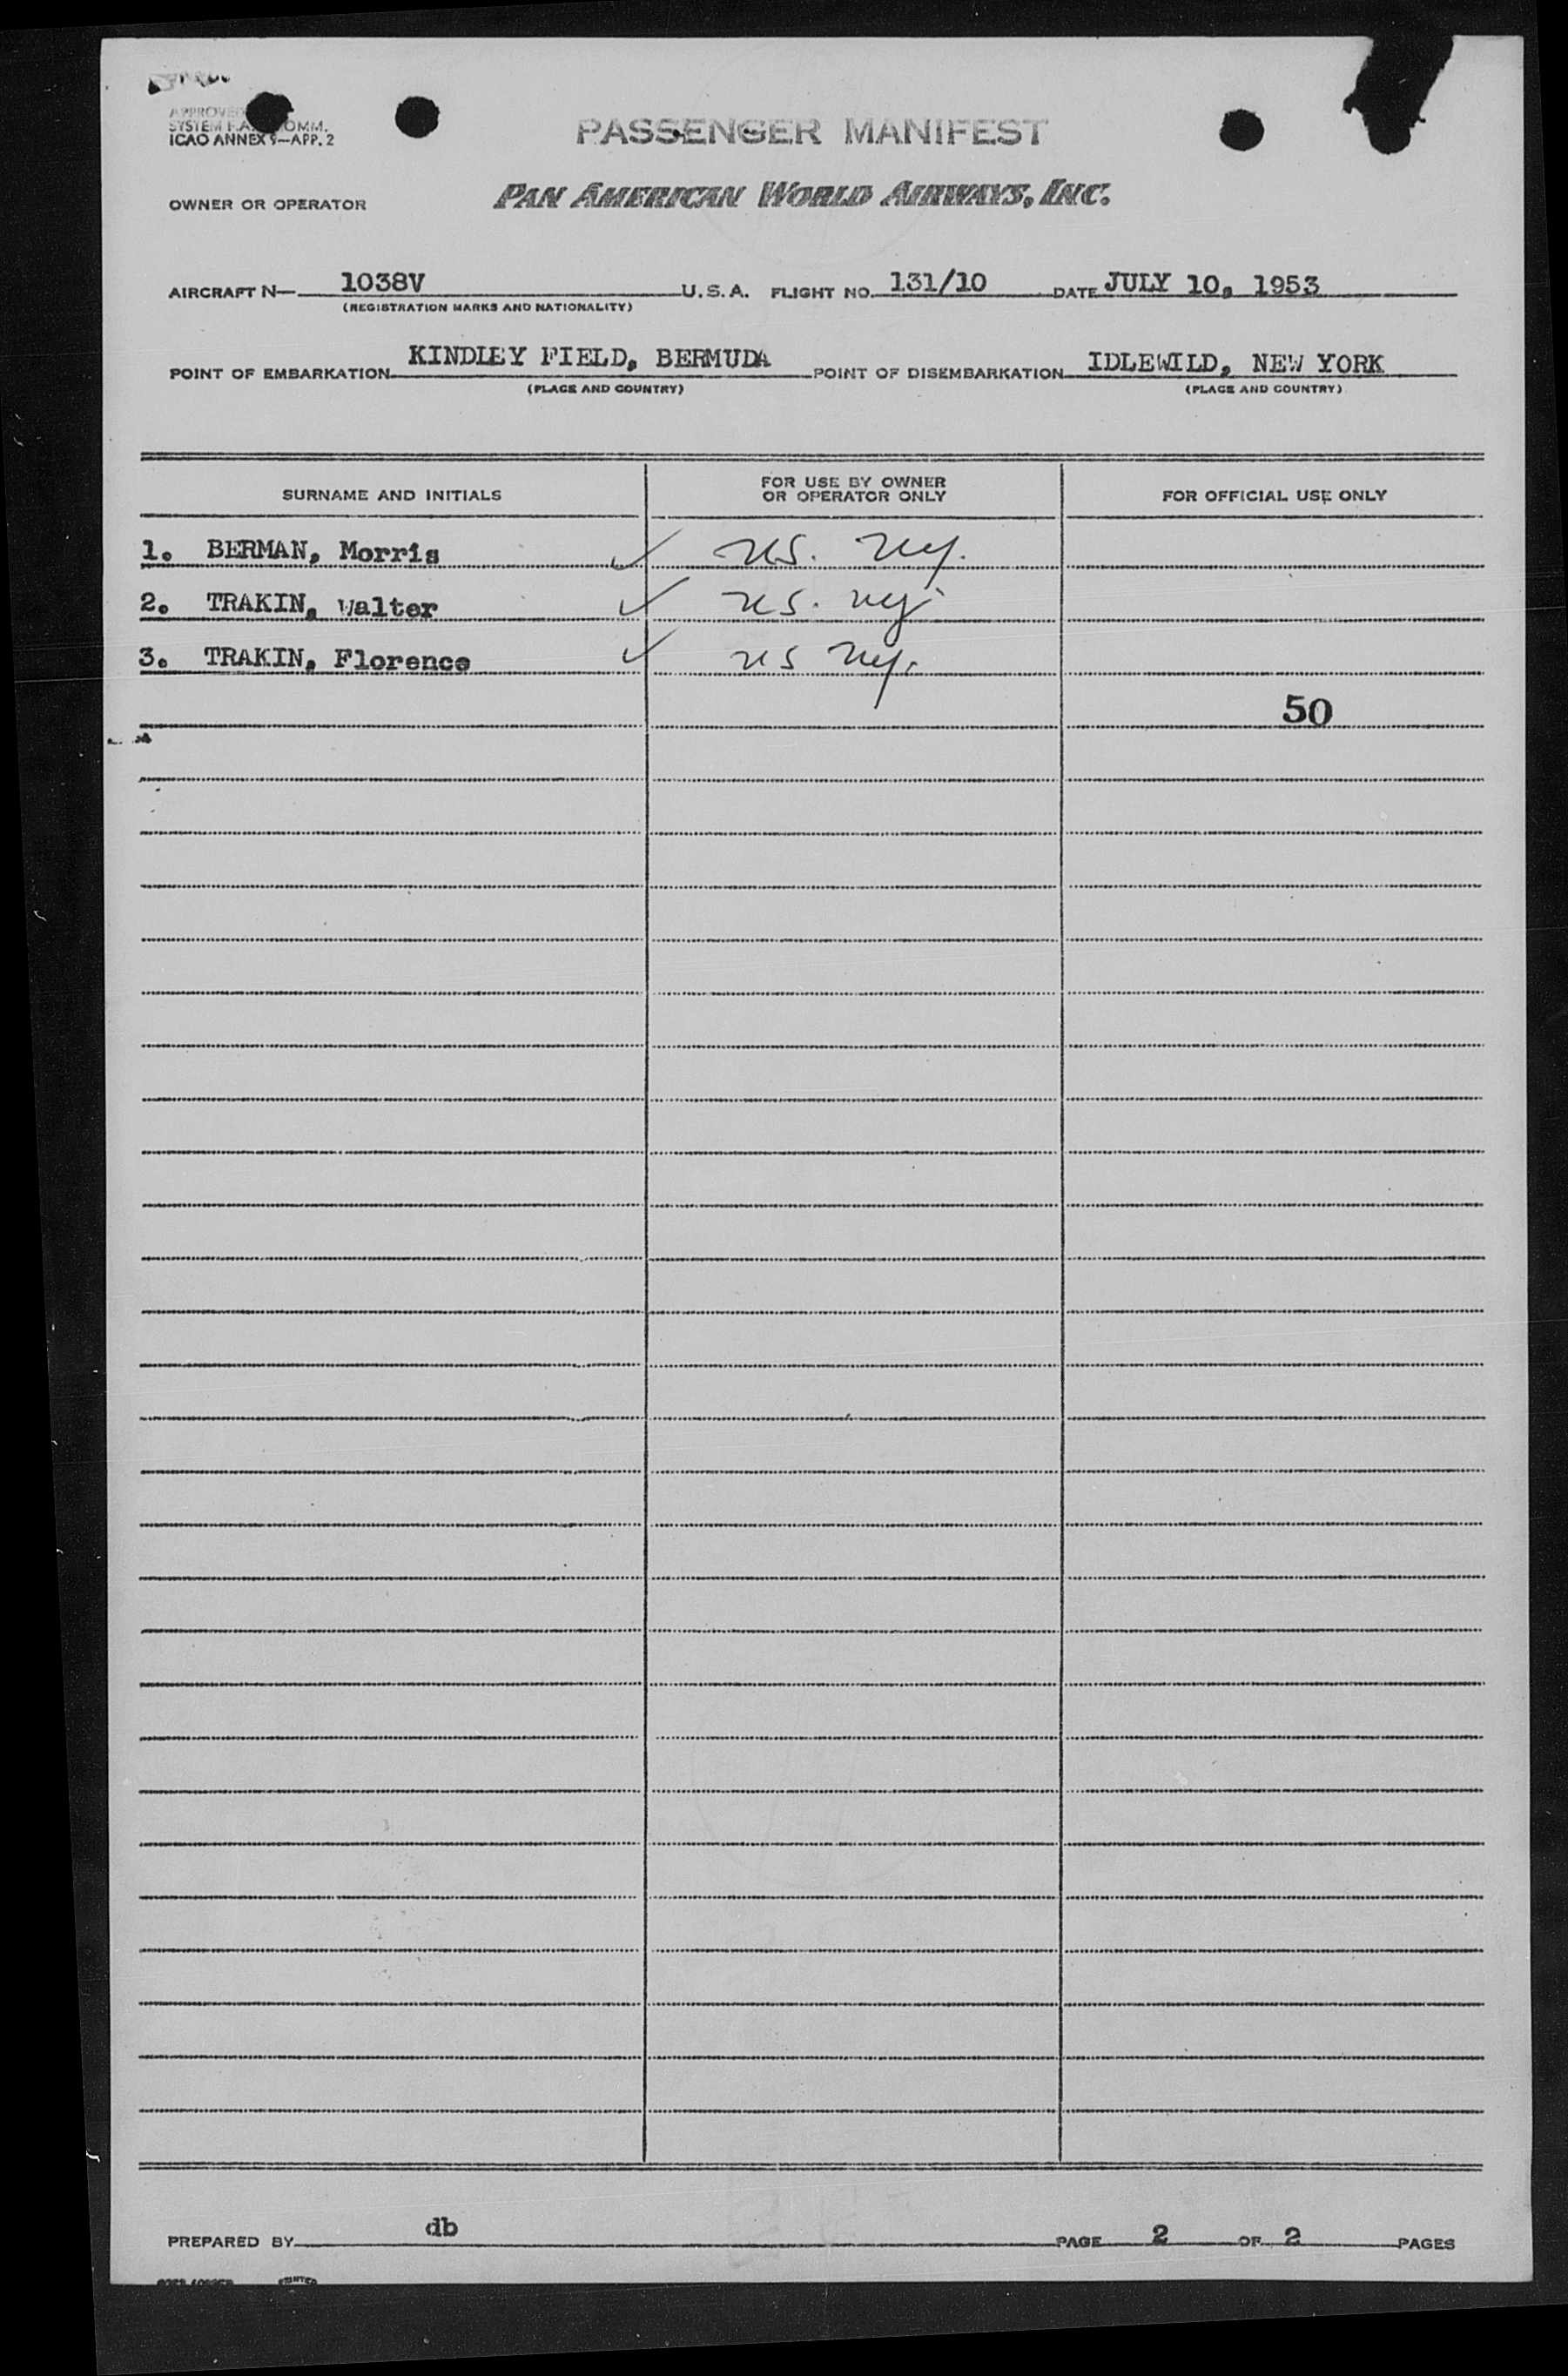 APPROVED
SYSTEM F.A. COMM.
ICAO ANNEX 9—APP. 2
PASSENGER MANIFEST
OWNER OR OPERATOR PAN AMERICAN WORLD AIRWAYS, INC.
AIRCRAFT N— 1038V U.S.A. FLIGHT NO. 131/10 DATE JULY 10, 1953
(REGISTRATION MARKS AND NATIONALITY)
POINT OF EMBARKATION KINDLEY FIELD, BERMUDA POINT OF DISEMBARKATION IDLEWILD, NEW YORK
(PLACE AND COUNTRY) (PLACE AND COUNTRY)
SURNAME AND INITIALS FOR USE BY OWNER OR OPERATOR ONLY FOR OFFICIAL USE ONLY
1. BERMAN, Morris ✓ US.
2. TRAKIN, Walter ✓ US.
3. TRAKIN, Florence ✓ US
50
PREPARED BY db PAGE 2 OF 2 PAGES